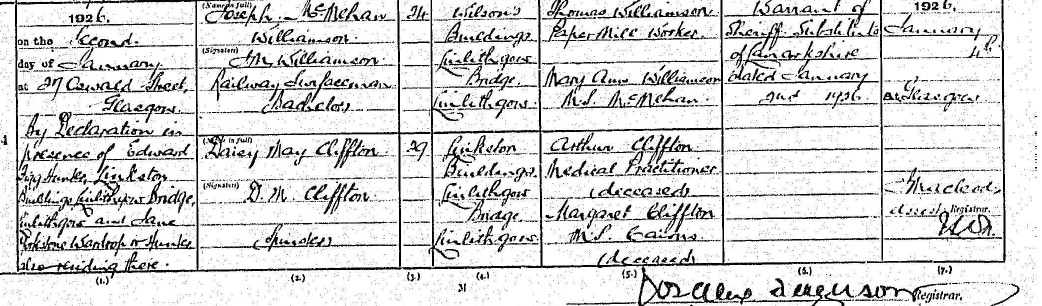 1926.
on the Second
day of January
at 27 Oswald Street,
Glasgow
By Declaration in
presence of Edward
Hunter, Linkston
Buildings, Linlithgow Bridge,
Linlithgow and Jane
Wardrop or Hunter
also residing there.
(1.)
(Name in full)
Joseph McMehan
Williamson.
(Signature)
J M Williamson
Railway Surfaceman
Bachelor
(Name in full)
Daisy May Cliffton
(Signature)
D. M Cliffton
Spinster
(2.)
24
29
(3.)
Wilson's
Buildings
Linlithgow
Bridge,
Linlithgow.
Linkston
Buildings.
Linlithgow
Bridge
Linlithgow
(4.)
31
Thomas Williamson
Paper Mill Worker.
Mary Ann Williamson
M.S. McMehan.
Arthur Cliffton
Medical Practitioner
(deceased)
Margaret Cliffton
M.S. Cairns
(deceased)
(5.)
Warrant of
Sheriff Substitute
of Lanarkshire
dated January
2nd 1926
(6.)
1926.
January
4th
At Glasgow
Macleod
Registrar.
(7.)
Ferguson
Registrar.